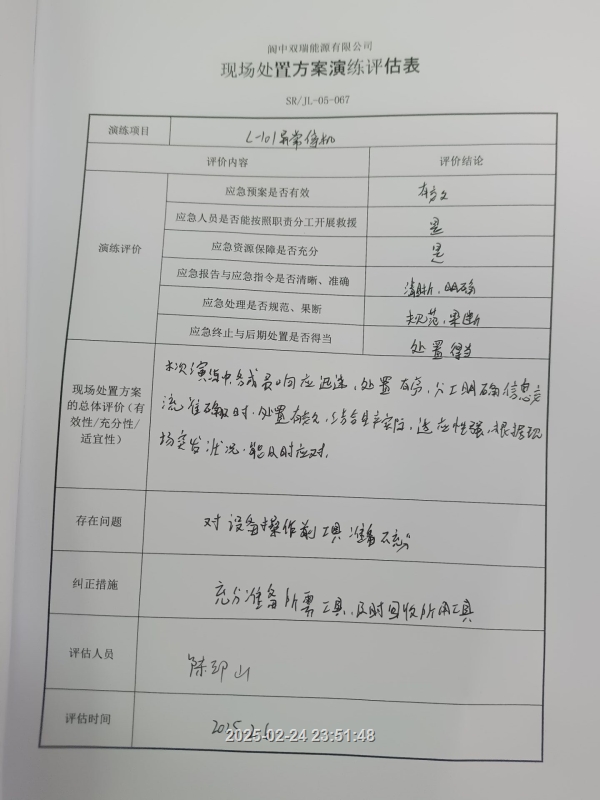 阆中双瑞能源有限公司
现场处置方案演练评估表
SR/JL-05-067
演练项目 L-101异常停机
评价内容 评价结论
演练评价
应急预案是否有效 有效
应急人员是否能按照职责分工开展救援 是
应急资源保障是否充分 是
应急报告与应急指令是否清晰、准确 清晰、明确
应急处理是否规范、果断 规范、果断
应急终止与后期处置是否得当 处置得当
现场处置方案
的总体评价（有
效性/充分性/
适宜性）
本次演练中各成员响应迅速，处置有序，分工明确信息交
流准确及时，处置有效，结合生产实际，适应性强，根据现
场突发状况，能及时应对。
存在问题 对设备操作前工具准备不充分
纠正措施 充分准备所需工具，及时回收所用工具
评估人员 陈
山
评估时间 2025.2.
2025-02-24 23:51:48